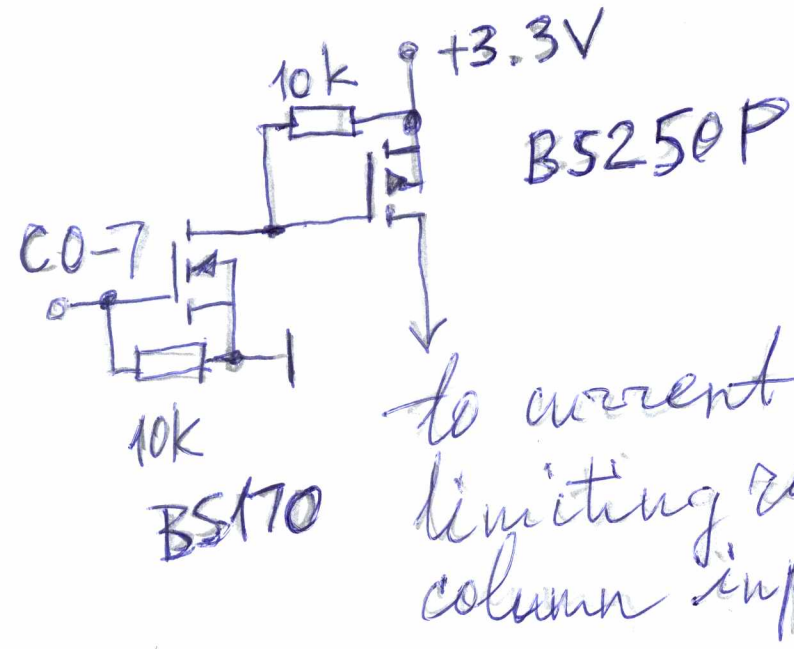 10k
+3.3V
BS250P
C0-7
10k
BS170
to current
limiting
column